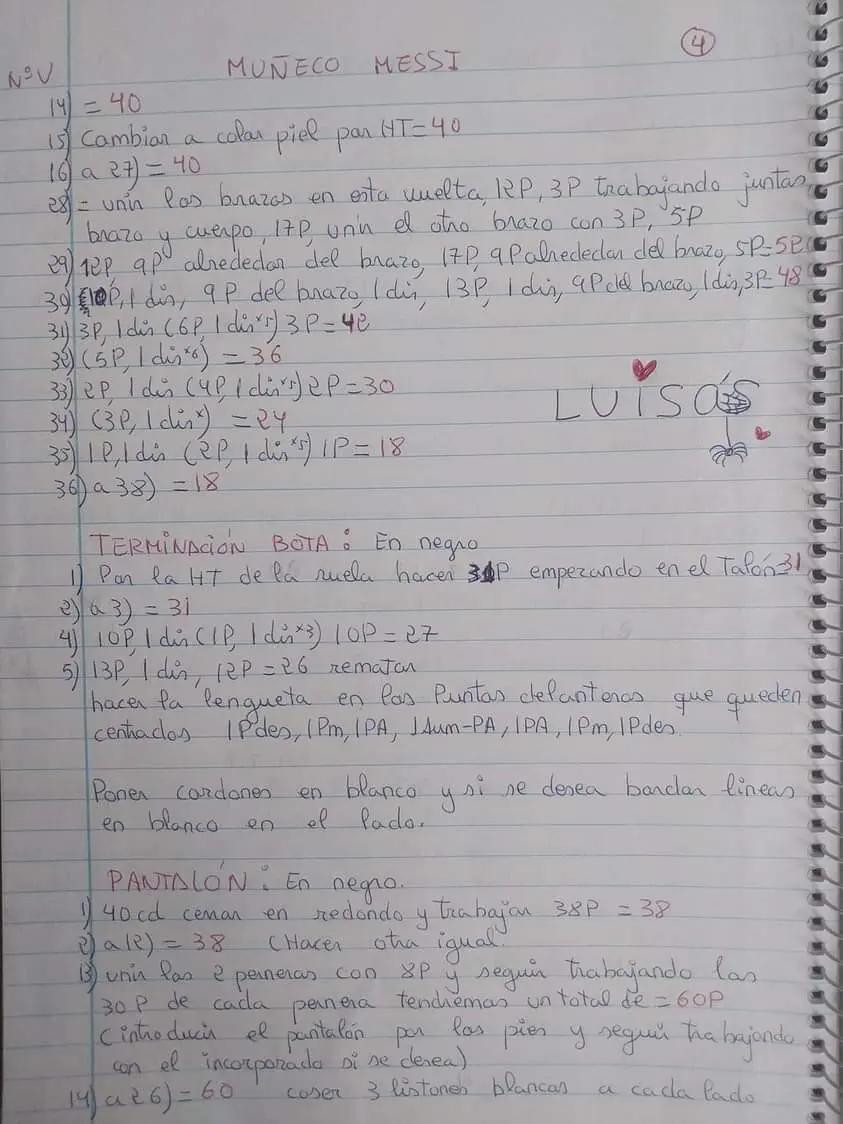 4
MUÑECO MESSI
NºV
14) = 40
15) Cambiar a color piel por HT = 40
16) a 27) = 40
28) = unir los brazos en esta vuelta, 12P, 3P trabajando juntas
brazo y cuerpo, 17P, unir el otro brazo con 3P, 5P
29) 12P, 9P alrededor del brazo, 17P, 9P alrededor del brazo, 5P = 52
30) 10P, 1 dis, 9P del brazo, 1 dis, 13P, 1 dis, 9P del brazo, 1 dis, 3P = 48
31) 3P, 1 dis (6P, 1 dis x5) 3P = 42
32) (5P, 1 dis x6) = 36
33) 2P, 1 dis (4P, 1 dis x5) 2P = 30
34) (3P, 1 dis x) = 24
35) 1P, 1 dis (2P, 1 dis x5) 1P = 18
36) a 38) = 18
LUISAS
TERMINACIÓN BOTA: En negro
1) Por la HT de la suela hacer 31P empezando en el Talón = 31
2) a 3) = 31
4) 10P, 1 dis (1P, 1 dis x3) 10P = 27
5) 13P, 1 dis, 12P = 26 rematar
hacer la lengueta en los Puntos delanteros que queden
centrados 1Pdes, 1Pm, 1PA, 1Aum-PA, 1PA, 1Pm, 1Pdes
Poner cordones en blanco y si se desea bordar lineas
en blanco en el lado.
PANTALÓN: En negro.
1) 40 cd cerrar en redondo y trabajar 38P = 38
2) a 12) = 38 (Hacer otra igual.
13) unir las 2 perneras con 8P y seguir trabajando los
30P de cada pernera tendremos un total de = 60P
(introducir el pantalón por los pies y seguir trabajando
con el incorporado si se desea)
14) a 26) = 60 coser 3 listones blancos a cada lado